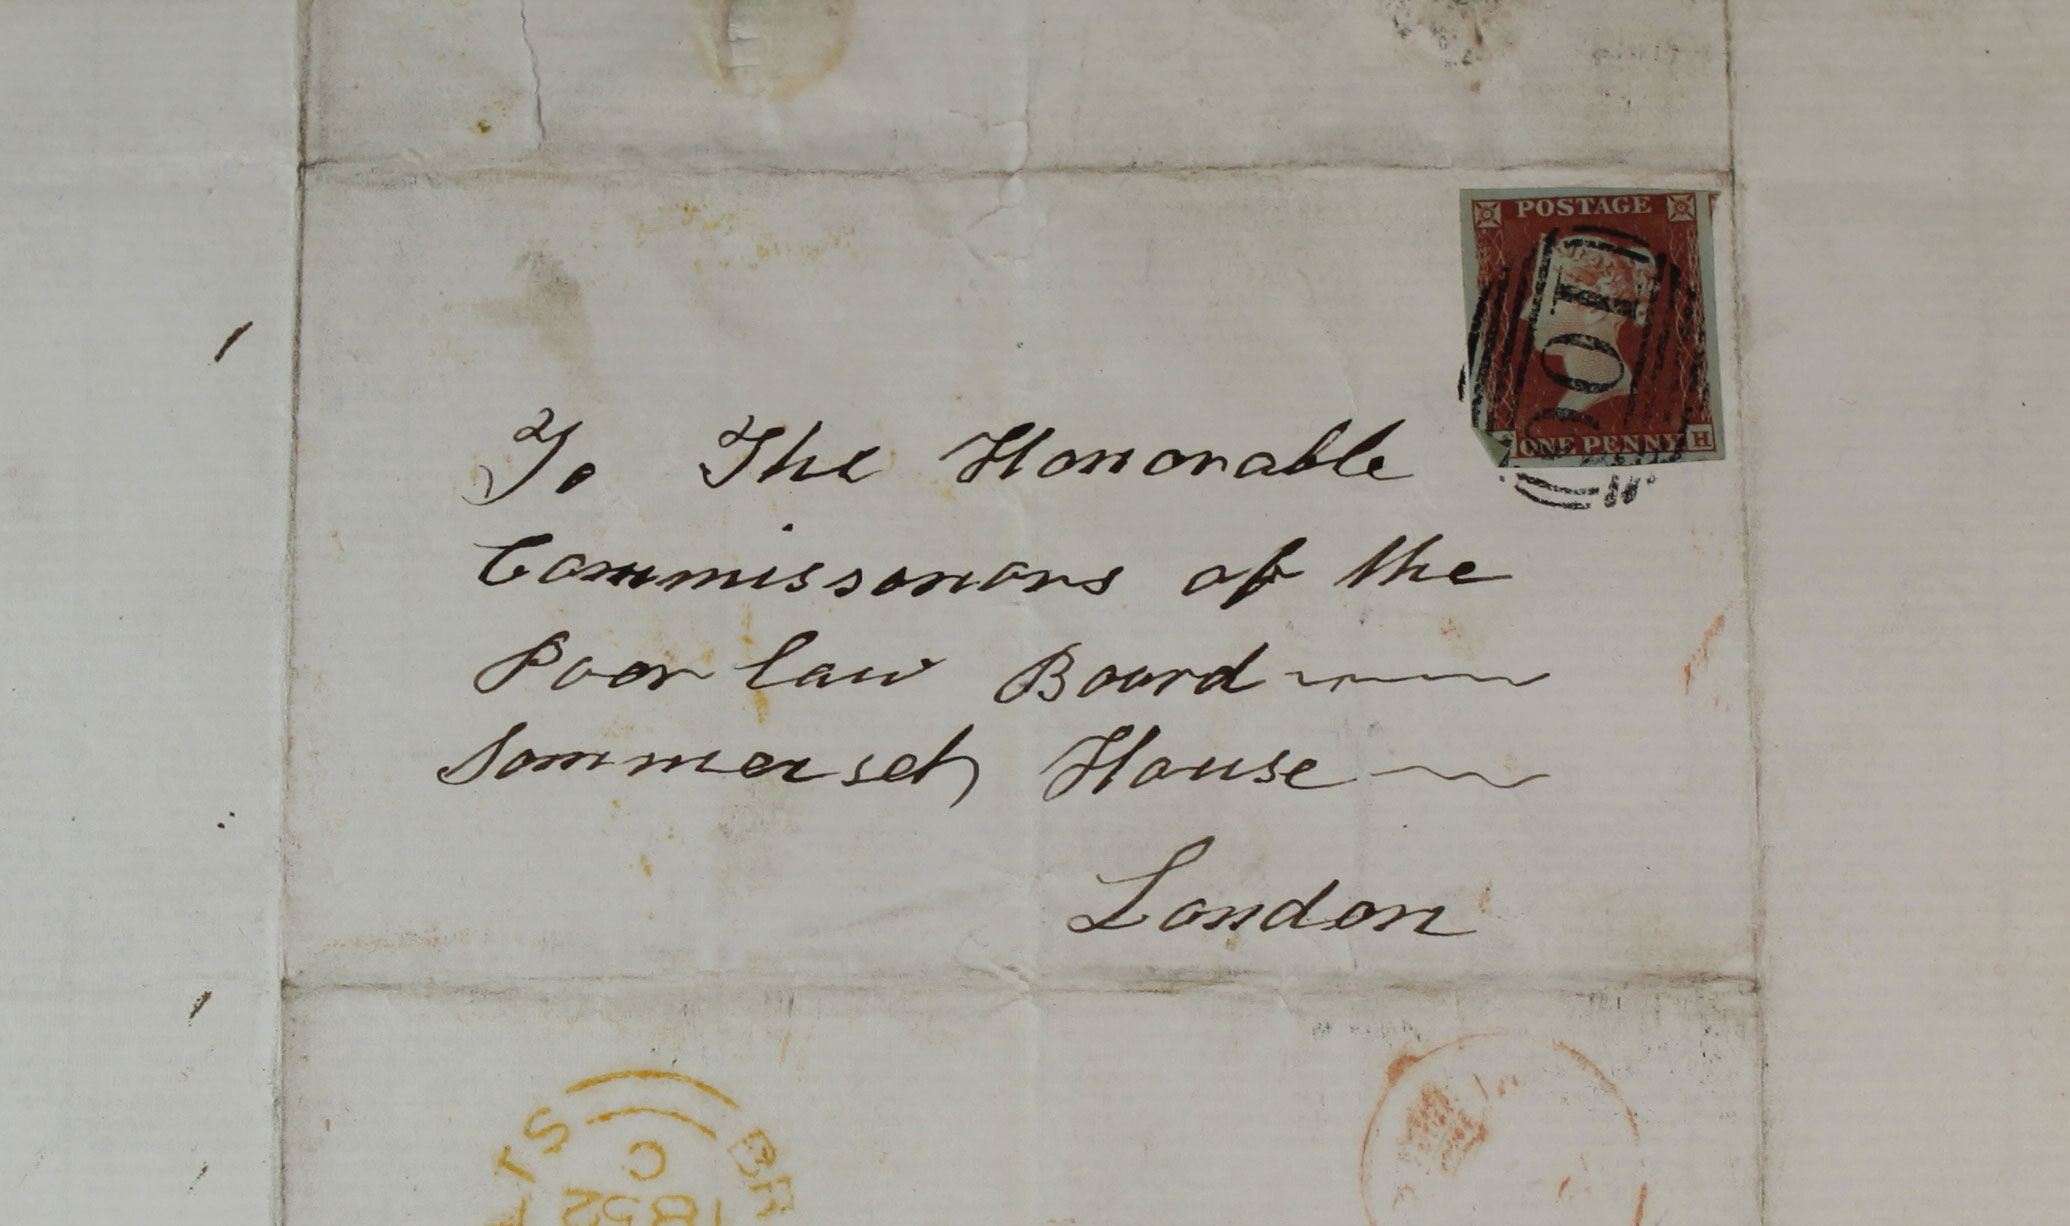 POSTAGE
100
ONE PENNY H
To The Honorable
Commissonors of the
Poor law Board
Sommerset House
London
TS BR
C